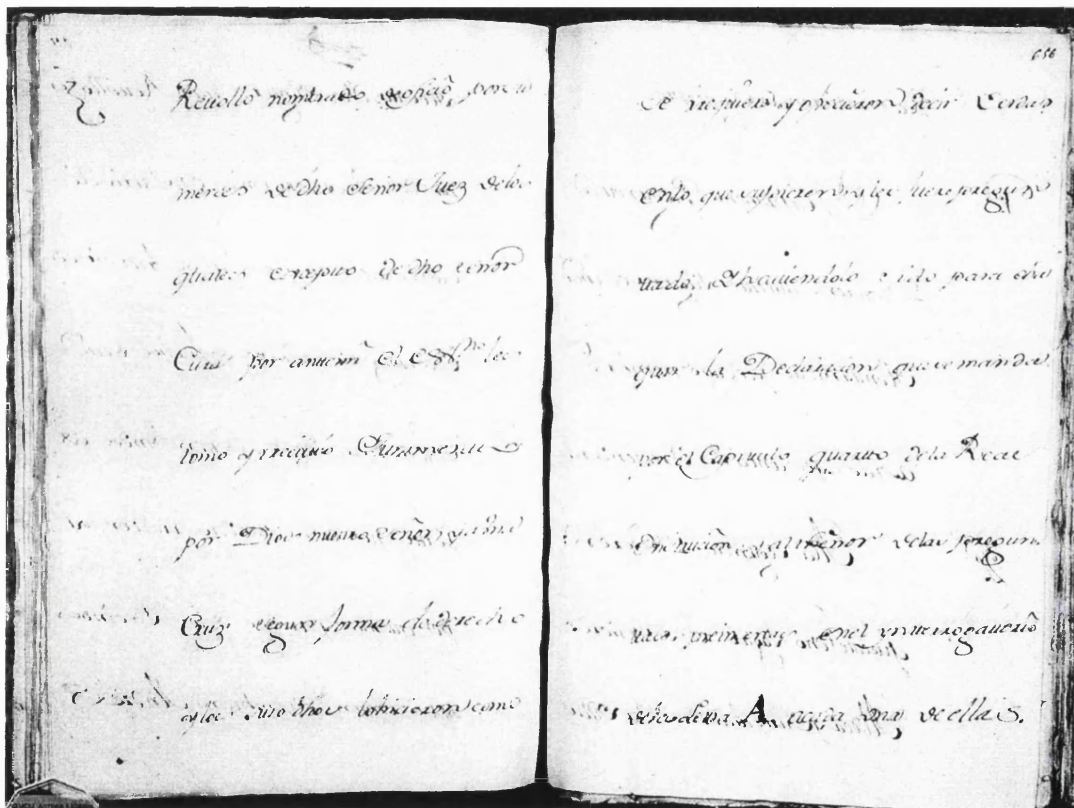 Reuollo nombrado de oficio por su
merced de dho Señor Juez delos
quales en respuo de dho señor
Cura por anuemi el Esno les
tomo y reciuió Juramento
por Dios nuestro Señor y a una
Cruz segun forma de derecho
y los suso dhos lo hicieron como
656
se requiere y ofrecieron decir verdad
enlo que supieren y les fuere pregun
tado, y hauiendolo sido para efec
puar la Declaracion que se manda
por el Capitulo quarto dela Real
Instrucion, y al thenor delas pregun
tas del interrogatorio
dela letra A cada una de ellas.